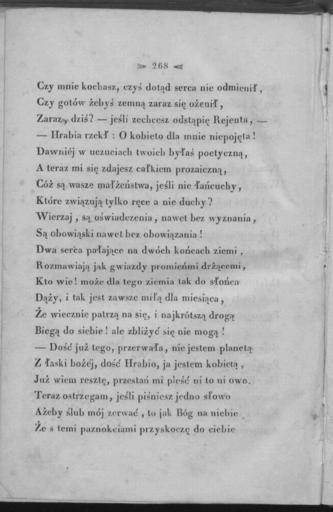 268
Czy mnie kochasz, czyś dotąd serca nie odmienił,
Czy gotów żebyś zemną zaraz się ożenił,
Zaraz, dziś? — jeśli zechcesz odstąpię Rejenta, —
— Hrabia rzekł : O kobieto dla mnie niepojęta !
Dawniéj w uczuciach twoich byłaś poetyczną,
A teraz mi się zdajesz całkiem prozaiczną,
Cóż są wasze małżeństwa, jeśli nie łańcuchy,
Które związują tylko ręce a nie duchy ?
Wierzaj , są oświadczenia , nawet bez wyznania ,
Są obowiąski nawet bez obowiązania !
Dwa serca pałające na dwóch końcach ziemi ,
Rozmawiają jak gwiazdy promieńmi drżącemi,
Kto wie! może dla tego ziemia tak do słońca
Dąży, i tak jest zawsze miłą dla miesiąca ,
Że wiecznie patrzą na się, i najkrótszą drogą
Biegą do siebie ! ale zbliżyć się nie mogą !
— Dość już tego, przerwała, nie jestem planetą
Z łaski bożéj, dość Hrabio, ja jestem kobietą ,
Już wiem resztę, przestań mi pleść ni to ni owo.
Teraz ostrzegam, jeśli piśniesz jedno słowo
Ażeby ślub mój zerwać , to jak Bóg na niebie
Że s temi paznokciami przyskoczę do ciebie